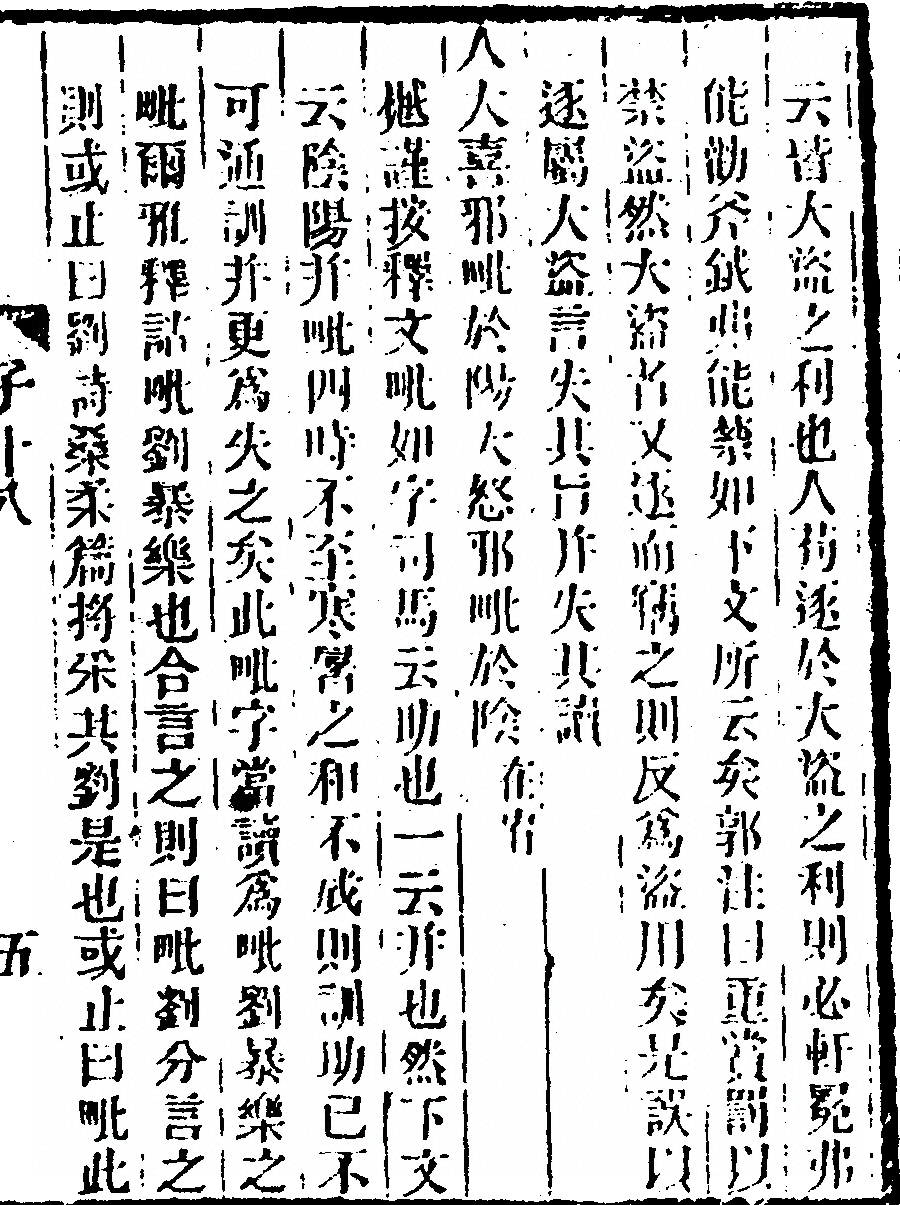 云皆大盜之利也人苟逐於大盜之利則必軒冕弗
能勸斧鉞弗能禁如下文所云矣郭注曰重賞罰以
禁盜然大盜者又逐而竊之則反爲盜用矣是誤以
逐屬大盜言失其旨并失其讀
人大喜邪毗於陽大怒邪毗於陰在宥
樾謹按釋文毗如字司馬云助也一云并也然下文
云陰陽并毗四時不至寒暑之和不成則訓助已不
可通訓并更爲失之矣此毗字當讀爲毗劉暴樂之
毗爾雅釋詁毗劉暴樂也合言之則曰毗劉分言之
則或止曰劉詩桑柔篇捋采其劉是也或止曰毗此
子十八
五